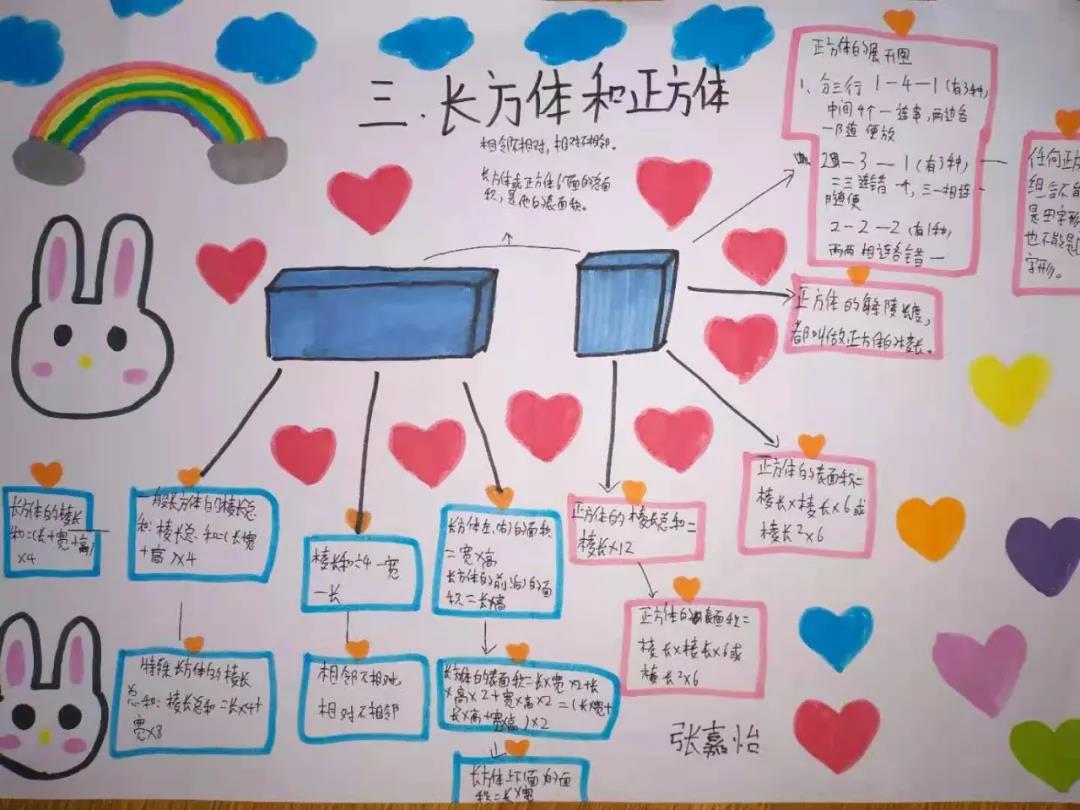 三.长方体和正方体
相邻不相对,相对不相邻。
长方体或正方体6个面的总面
积,是他的表面积。
正方体的展开图
1、分三行 1-4-1(有6种)
中间4个一连串,两边各
一随便放
2-3-1(有3种)
二三连错一个,三一相连
随便
2-2-2(有1种)
两两相连各错一
任何正方
组合不能
是田字形
也不能是
字形。
正方体的每条棱长度,
都叫做正方体的棱长。
长方体的棱长
和=(长+宽+高)
×4
一般长方体的棱长总
和:棱长总和=(长+宽
+高)×4
棱长和÷4-宽
-长
长方体左(右)的面积
=宽×高
长方体的前(后)的面
积=长×高
正方体的棱长总和=
棱长×12
正方体的表面积=
棱长×棱长×6或
棱长²×6
正方体的表面积=
棱长×棱长×6或
棱长2×6
特殊长方体的棱长
总和:棱长总和=长×4+
宽×8
相邻不相对
相对不相邻
长方体的表面积=长×宽×2+长
×高×2+宽×高×2=(长×宽+
长×高+宽×高)×2
张嘉怡
长方体上下面的面
积=长×宽